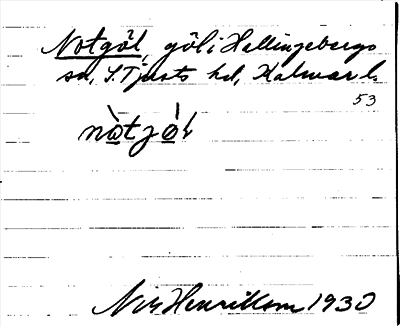 Notgöl, göl i Hallingebergs
sn, S. Tjusts hd, Kalmar l.
53
nòtjö̀l
Henriksson 1930